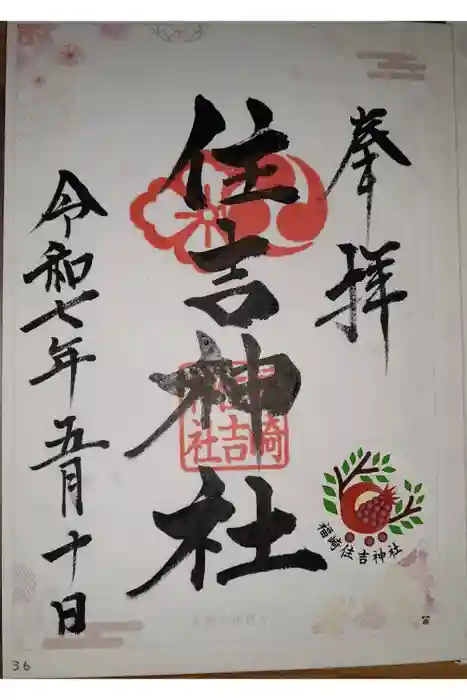 奉拝
住吉神社
令和七年五月十日
福崎住吉神社
36